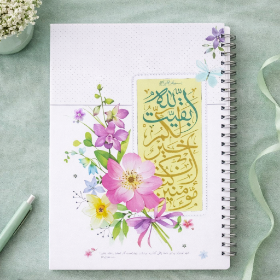 بقیّت الله
خیر لکم
إن کنتم
مؤمنین